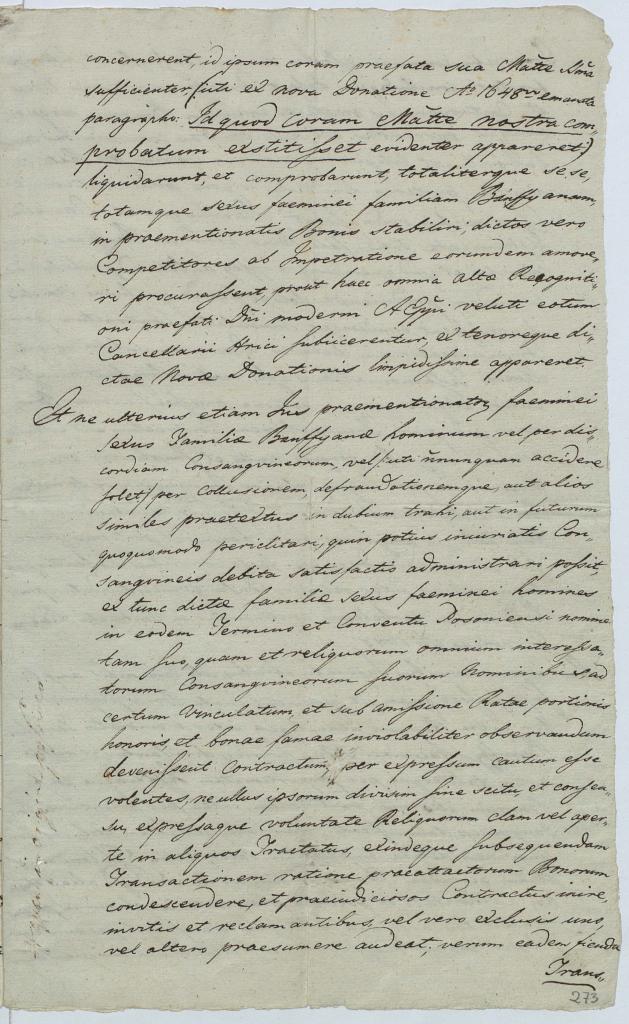 concernerent, id ipsum coram praefata sua Mãtte
sufficienter, (:uti ex nova Donatione Aº 1648vo emanata
paragrapho: Id quod Coram Mãtte nostra com„
probatum exstitisset evidenter appareret:)
liquidarunt, et comprobarunt, totaliterque sese,
totamque sexus faeminei familiam Bánffyanam,
in praementionatis Bonis stabiliri, dictos vero
Competitores ab Impetratione eorundem amove„
ri procurassent, prout haec omnia altae Recogniti„
oni praefati Dñi moderni veluti eotum
Cancellarii Aulici subiicerentur, ex tenoreque di„
ctae Novae Donationis limpidissime appareret.
Et ne ulterius etiam Jus praementionatoꝝ faeminei
sexus Familiae Banffyanae hominum vel per dis„
cordiam Consangvineorum, vel /:uti ñnunquam accidere
solet:/ per Collusionem, defraudationemque, aut alios
similes praetextus in dubium trahi, aut in futurum
quoquomodo periclitari, quin potius iniuriatis Con„
sangvineis debita satisfactio administrari possit,
ex tunc dictae familiae sexus faeminei homines
in eodem Termino et Conventu Posoniensi nomine
tam suo, quam et reliquorum omnium interessa„
torum Consangvineorum suorum Nominibus ad
certum Vinculatum, et sub amissione Ratae portionis
honoris, et bonae famae inviolabiliter observandum
devenissent Contractum, per expressum cautum esse
volentes, ne ullus ipsorum divisim sine scitu, et consen„
su, expressaque voluntate Reliquorum clam vel aper„
te in aliquos Tractatus, exindeque subsequendam
Transactionem ratione praeattactorum Bonorum
condescendere, et praeiudiciosos Contractus inire,
invitis et reclamantibus, vel vero exclusis uno,
vel altero praesumere audeat; verum eadem fienda
Trans„
273